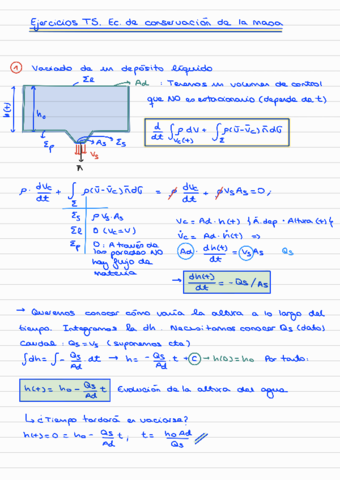 Ejercicios TS. Ec. de conservación de la masa
① Vaciado de un depósito líquido
Σl
Ad : Tenemos un volumen de control
que NO es estacionario (depende de t)
h(t)
h0
Σp
As
Σs
vs
n
d/dt ∫Vc(t) ρ dV + ∫Σ ρ(ū-v̄c) n̄ dσ
ρ · dVc/dt + ∫Σ ρ(ū-v̄c) n̄ dσ = ρ dVc/dt + ρ vs As = 0;
Σ
Σs | ρ vs · As
Σl | 0 (vc = v)
Σp | 0 : A través de
las paredes NO
hay flujo de
materia
Vc = Ad · h(t) { A.dep · Altura(t) }
V̇c = Ad · ḣ(t) =>
Ad · dh(t)/dt = vs As Qs
→ dh(t)/dt = - Qs/As
→ Queremos conocer cómo varía la altura a lo largo del
tiempo. Integramos la dh. Necesitamos conocer Qs (dato)
Caudal: Qs = vs (suponemos cte)
∫dh = ∫ - Qs/Ad · dt → h = - Qs/Ad · t + C → h(0) = h0 Por tanto:
h(t) = h0 - Qs/Ad t Evolución de la altura del agua
↳ ¿Tiempo tardará en vaciarse?
h(t) = 0 = h0 - Qs/Ad t; t = h0 Ad/Qs